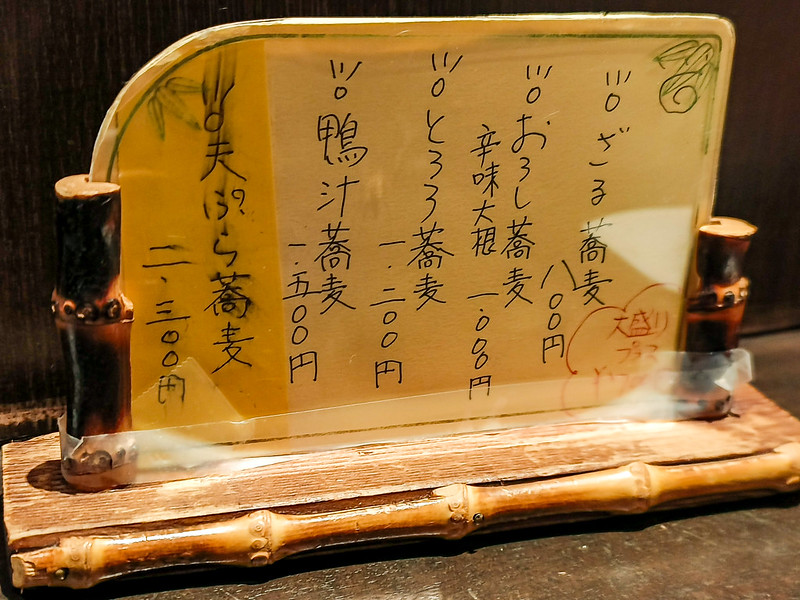 ざる蕎麦
八〇〇円
おろし蕎麦
辛味大根
一.〇〇〇円
とろろ蕎麦
一.二〇〇円
鴨汁蕎麦
一.五〇〇円
天ぷら蕎麦
二.三〇〇円
大盛り
プラス